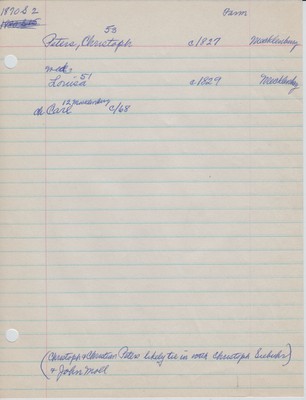 1870 S 2
Farm
53
Peters, Christoph c1827 Mecklenburg
51
Louisa c1829 Mecklenburg
12
ch Carl c/68
(Christoph & Christian Peters likely tie in with Christoph
& John Moll)